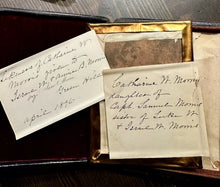 Likeness of Catharine W.
Morris given to
Israel W. & Annie B. Morris
by
Green Hill
April 1896
Catharine W. Morris
daughter of
Capt. Samuel Morris
sister of Luke W.
& Israel W. Morris